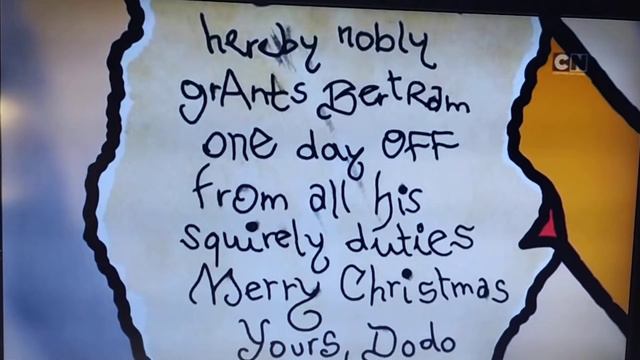 hereby nobly
CN
grAnts BertRam
one day OFF
from all his
squirely duties
Merry Christmas
Yours, Dodo